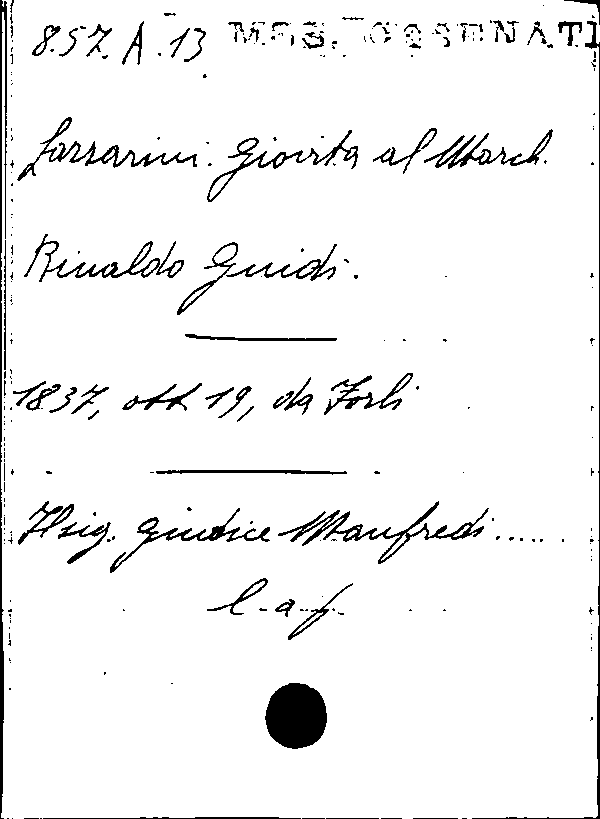 857. A. 13 MSS. CESENATI
Lazzarini. Giovita al March.
Rinaldo Guidi.
1837, ott. 19, da Forlì
Il sig. giudice Manfredi.....
l. a. f.